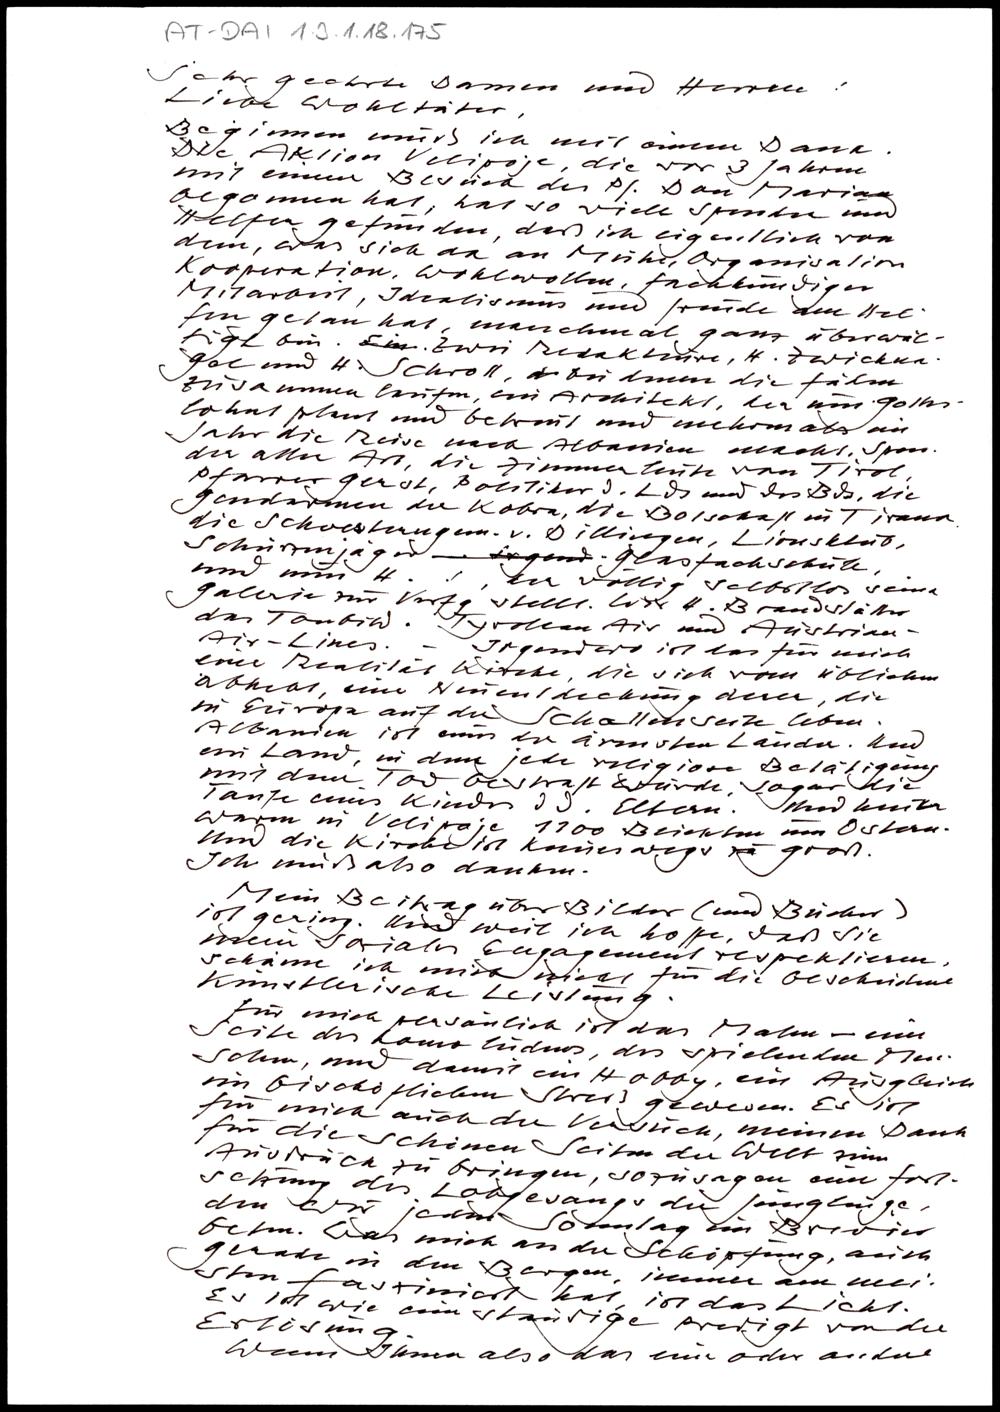 AT-DAI 1.3.1.18.175
Sehr geehrte Damen und Herren!
Liebe Wohltäter,
Beginnen muß ich mit einem Dank.
Die Aktion Velipoje, die vor 3 Jahren
mit einem Besuch des Pf. Don Marian
begonnen hat, hat so viele Spender und
Helfer gefunden, daß ich eigentlich von
dem, was sich da an Mühe, Organisation
Kooperation, Wohlwollen, fachkundiger
Mitarbeit, Idealismus und Freude am Hel-
fen getan hat, manchmal ganz überwäl-
tigt bin. Zwei Redakteure, H. Zwickna-
gel und H. Schroll, bei denen die Fäden
zusammen laufen, ein Architekt, der um Gottes-
lohn plant und betreut und mehrmals im
Jahr die Reise nach Albanien macht, Spen-
der aller Art, die Zimmerleute von Tirol,
Pfarrer Gerst, Politiker d. Lds und des Bds, die
Gendarmen der Kobra, die Botschaft in Tirana
die Schwesterngem. v. Dillingen, Lionsklub,
Schürzenjäger Glasfachschule,
und nun H. !, der völlig selbstlos seine
Galerie zur Verfg stellt. H. Brandstätter
das Tonbild. Tyrolean Air und Austrian-
Air-Lines. - Irgendwo ist das für mich
eine Realität Kirche, die sich vom üblichen
abhebt, eine Neuentdeckung derer, die
in Europa auf der Schattenseite leben.
Albanien ist eins der ärmsten Länder. Und
ein Land, in dem jede religiöse Betätigung
mit dem Tod bestraft wurde, sogar die
Taufe eines Kindes d. Eltern. Und heuer
waren in Velipoje 1100 Beichten um Ostern.
Und die Kirche ist keineswegs groß.
Ich muß also danken.
Mein Beitrag über Bilder (und Bücher)
ist gering. Und weil ich hoffe, daß Sie
mein soziales Engagement respektieren,
schäme ich mich nicht für die bescheidene
künstlerische Leistung.
Für mich persönlich ist das Malen - eine
Seite des homo ludens, des spielenden Men-
schen, und damit ein Hobby, ein Ausgleich
im bischöflichen Stress gewesen. Es ist
für mich auch der Versuch, meinen Dank
für die schönen Seiten der Welt zum
Ausdruck zu bringen, sozusagen eine Fort-
setzung des Lobgesangs der Jünglinge,
den wir jeden Sonntag im Brevier
beten. Was mich an der Schöpfung, auch
gerade in den Bergen, immer am mei-
sten fasziniert hat, ist das Licht.
Es ist wie eine ständige Predigt von der
Erlösung.
Wenn Ihnen also das eine oder andere